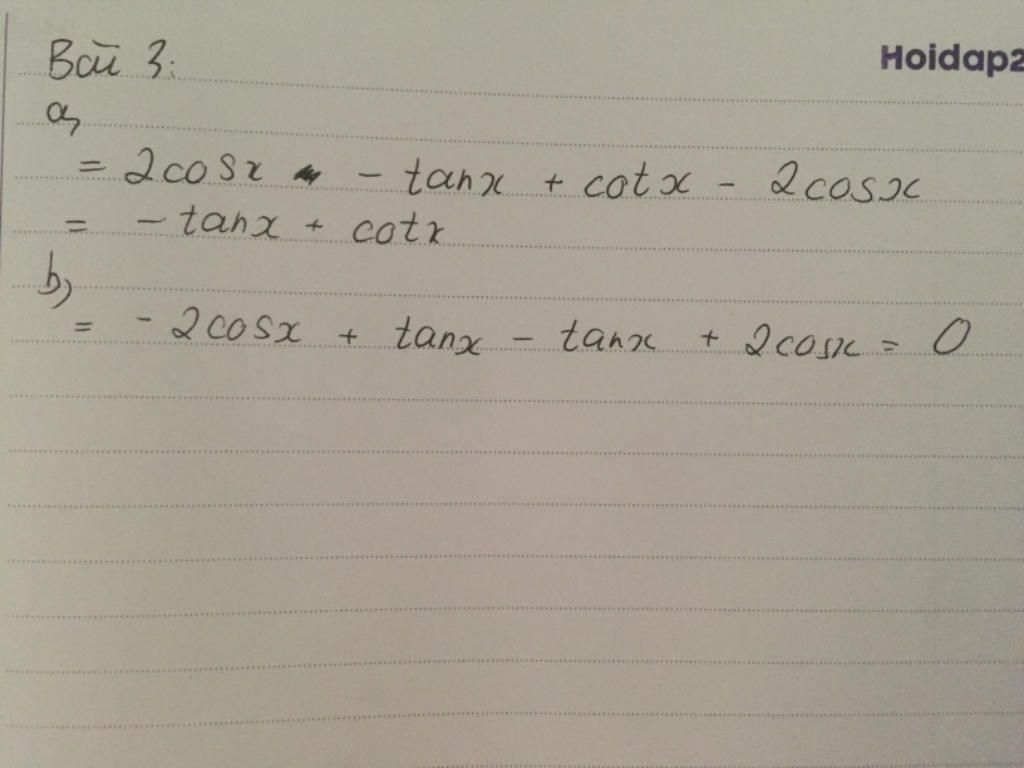 Bài 3:
Hoidap2
a,
= 2cosx - tanx + cotx - 2cosx
= - tanx + cotx
b,
= - 2cosx + tanx - tanx + 2cosx = 0